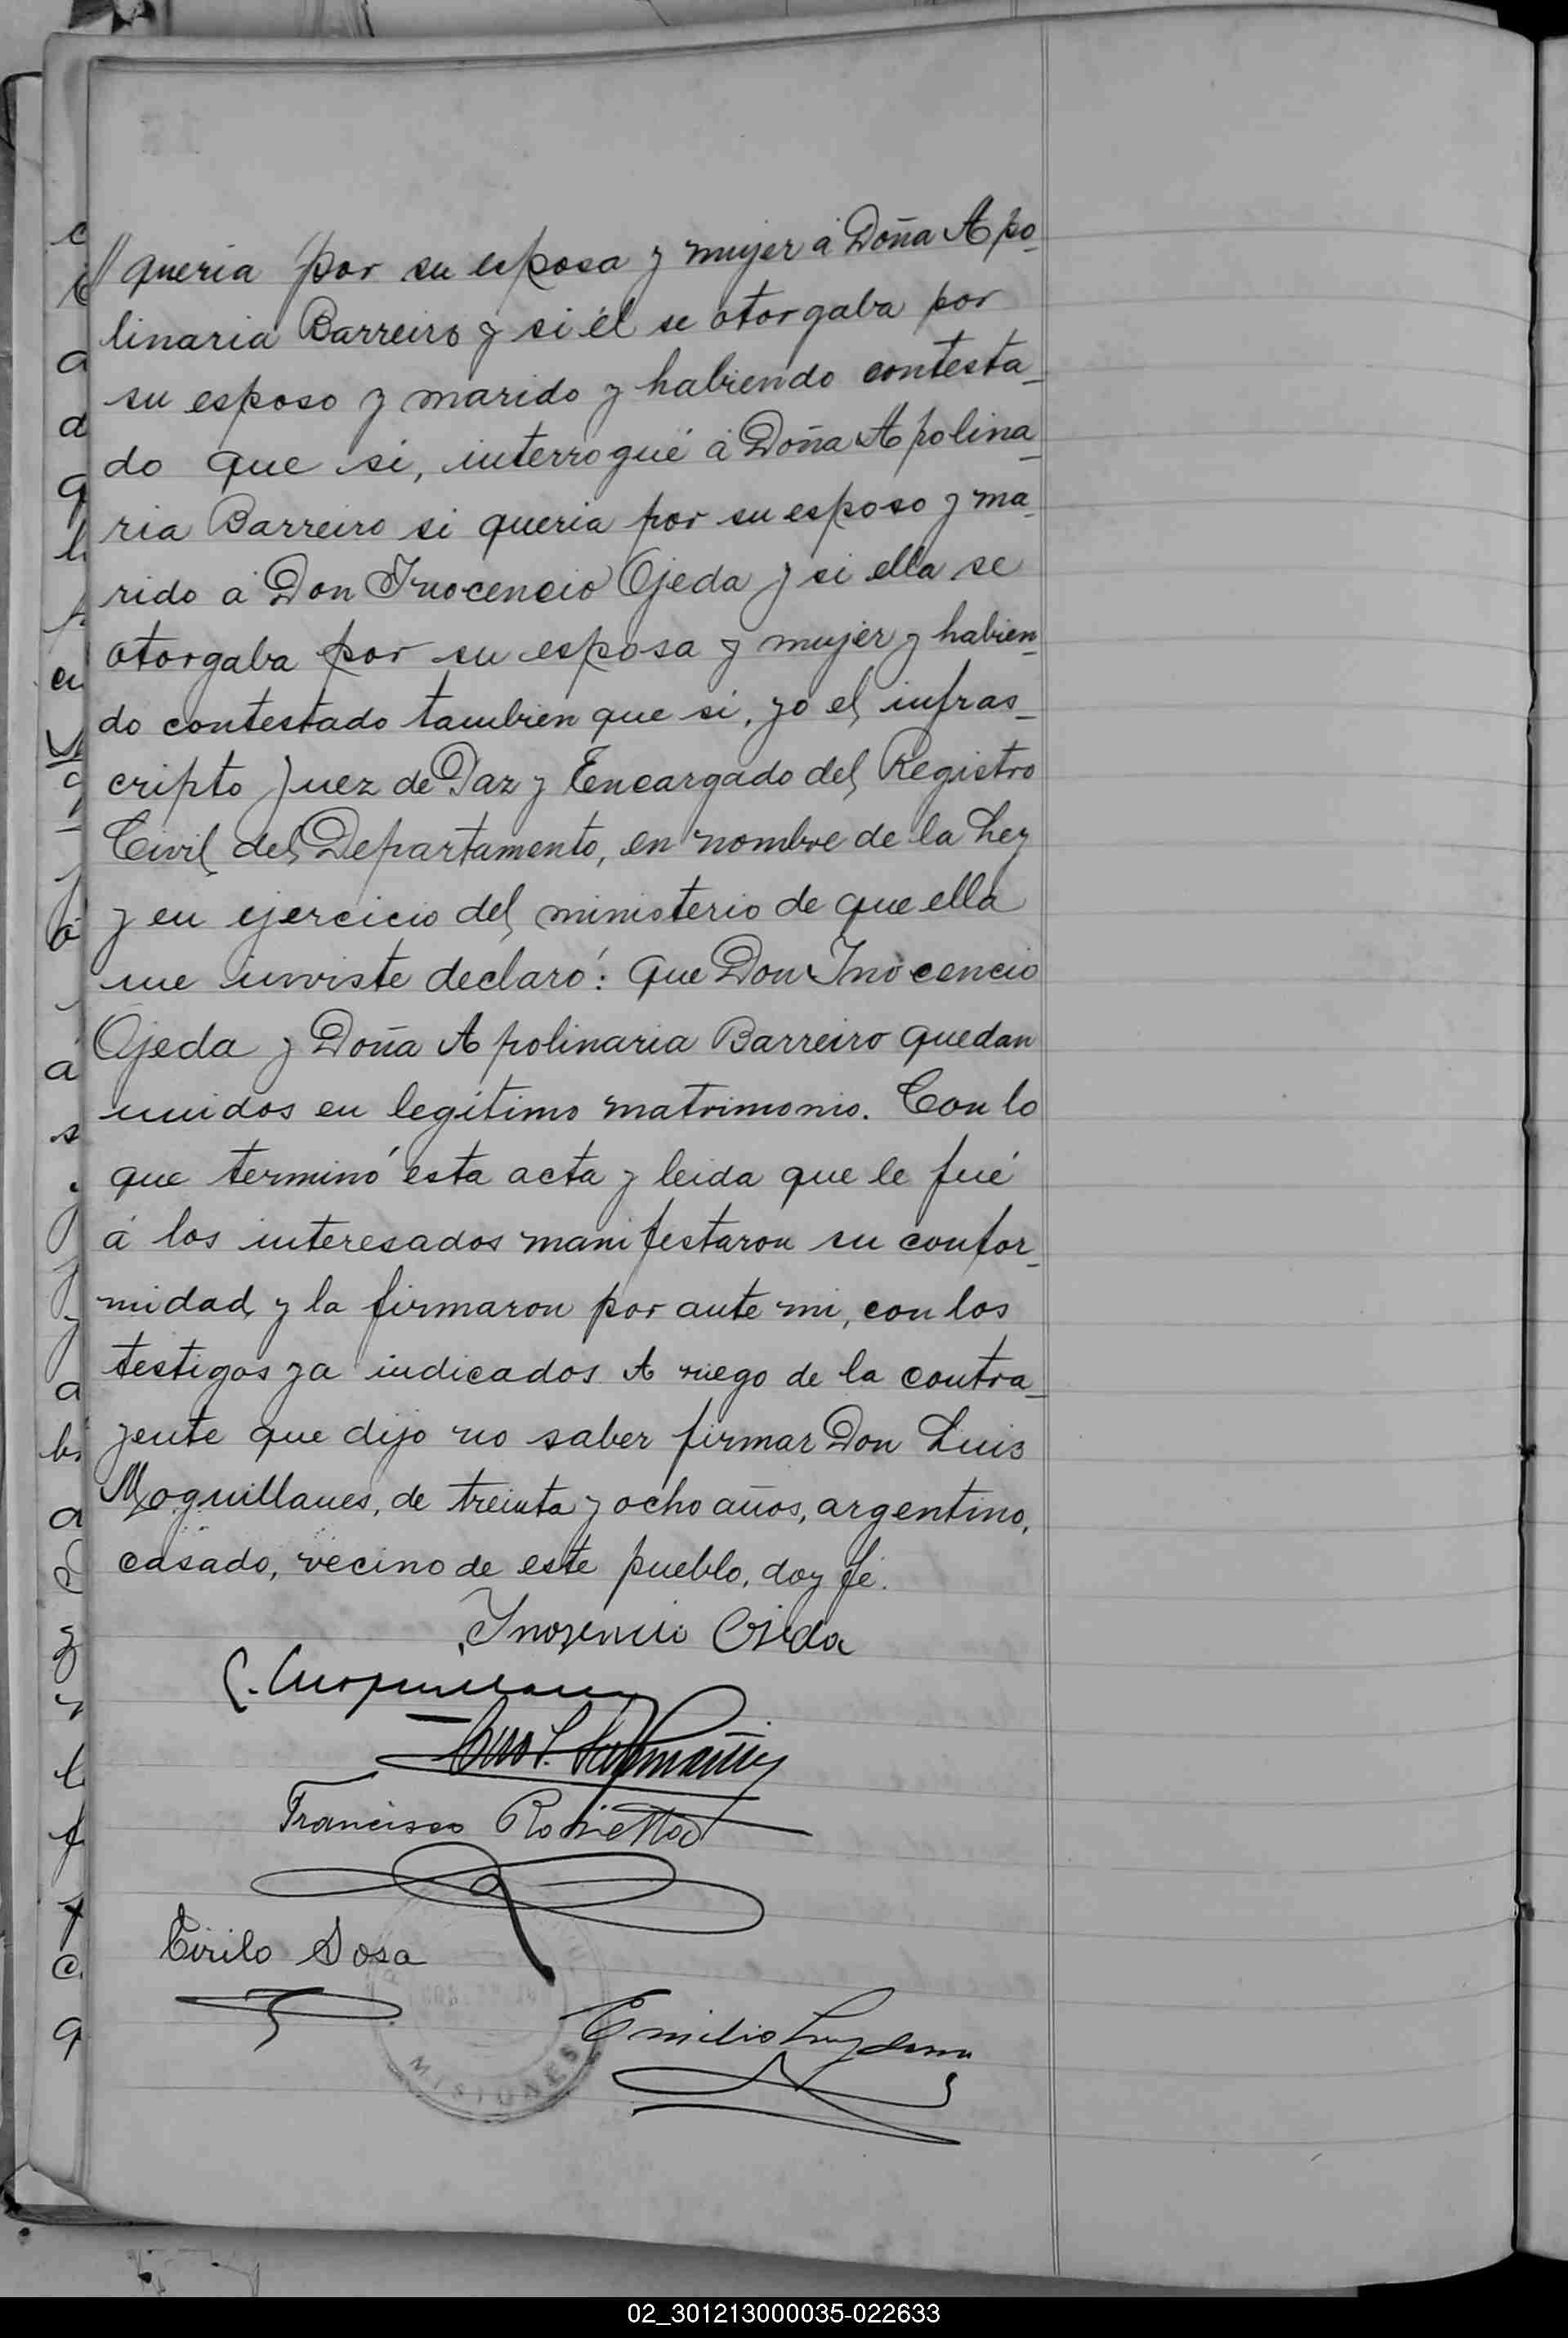 // queria por su esposa y mujer á Doña Apo_
linaria Barreiro y si él se otorgaba por
su esposo y marido y habiendo contesta_
do que si, interrogué á Doña Apolina_
ria Barreiro si queria por su esposo y ma_
rido á Don Inocencio Ojeda y si ella se
otorgaba por su esposa y mujer y habien_
do contestado tambien que si, yo el infras_
cripto Juez de Paz y Encargado del Registro
Civil del Departamento, en nombre de la Ley
y en ejercicio del ministerio de que ella
me inviste declaró: que Don Inocencio
Ojeda y Doña Apolinaria Barreiro quedan
unidos en legitimo matrimonio. Con lo
que terminó esta acta y leida que le fué
á los interesados manifestaron su confor_
midad y la firmaron por ante mi, con los
testigos ya indicados. A ruego de la contra_
yente que dijo no saber firmar Don Luis
Moquillanes, de treinta y ocho años, argentino,
casado, vecino de este pueblo, doy fé.
Inosencio Ojeda
Francisco
Cirilo Sosa
Emilio
MISIONES
02_301213000035-022633